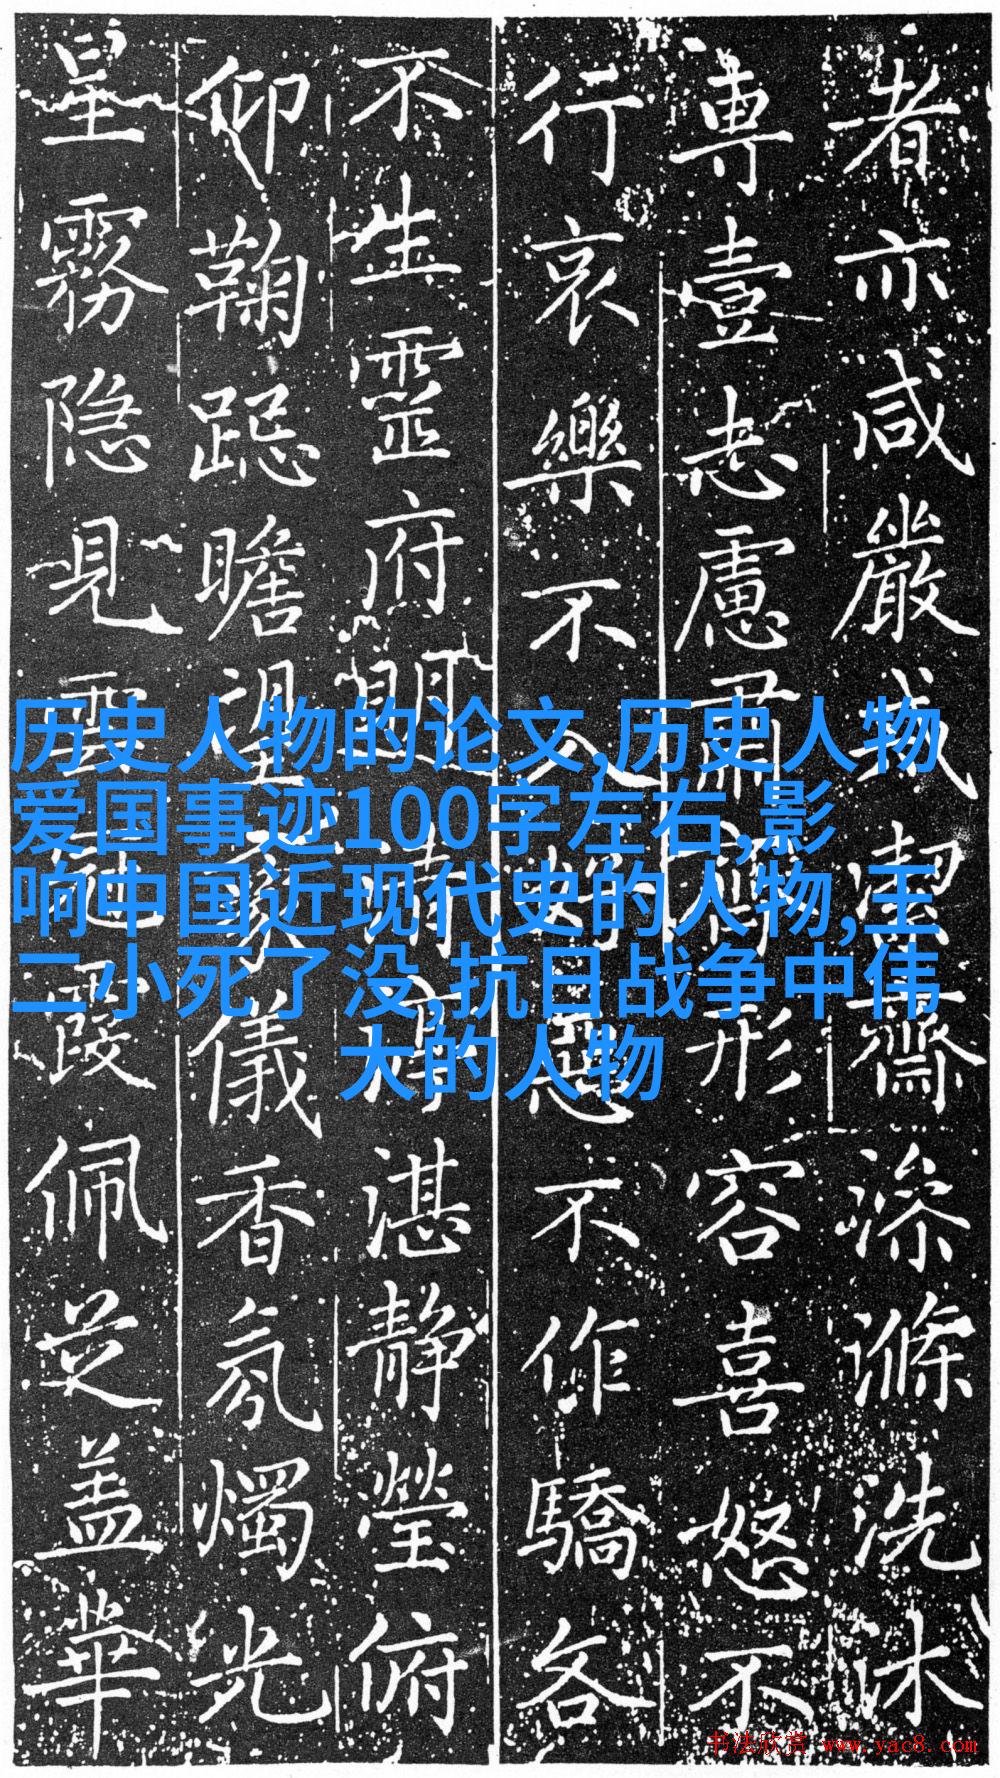 者亦咸嚴戒潔齋澡滌洗沐
專壹志慮肅形容喜怒不
行哀樂不入好惡不作驕各
不生靈府清湛靜瑩俯
仰鞠跽瞻望儀香氛燭光
星霧隐見雲冠霞佩芝盖華
历史人物的论文,历史人物
爱国事迹100字左右,影
响中国近现代史的人物,王
二小死了没,抗日战争中伟
大的人物
书法欣赏 www.yac8.com